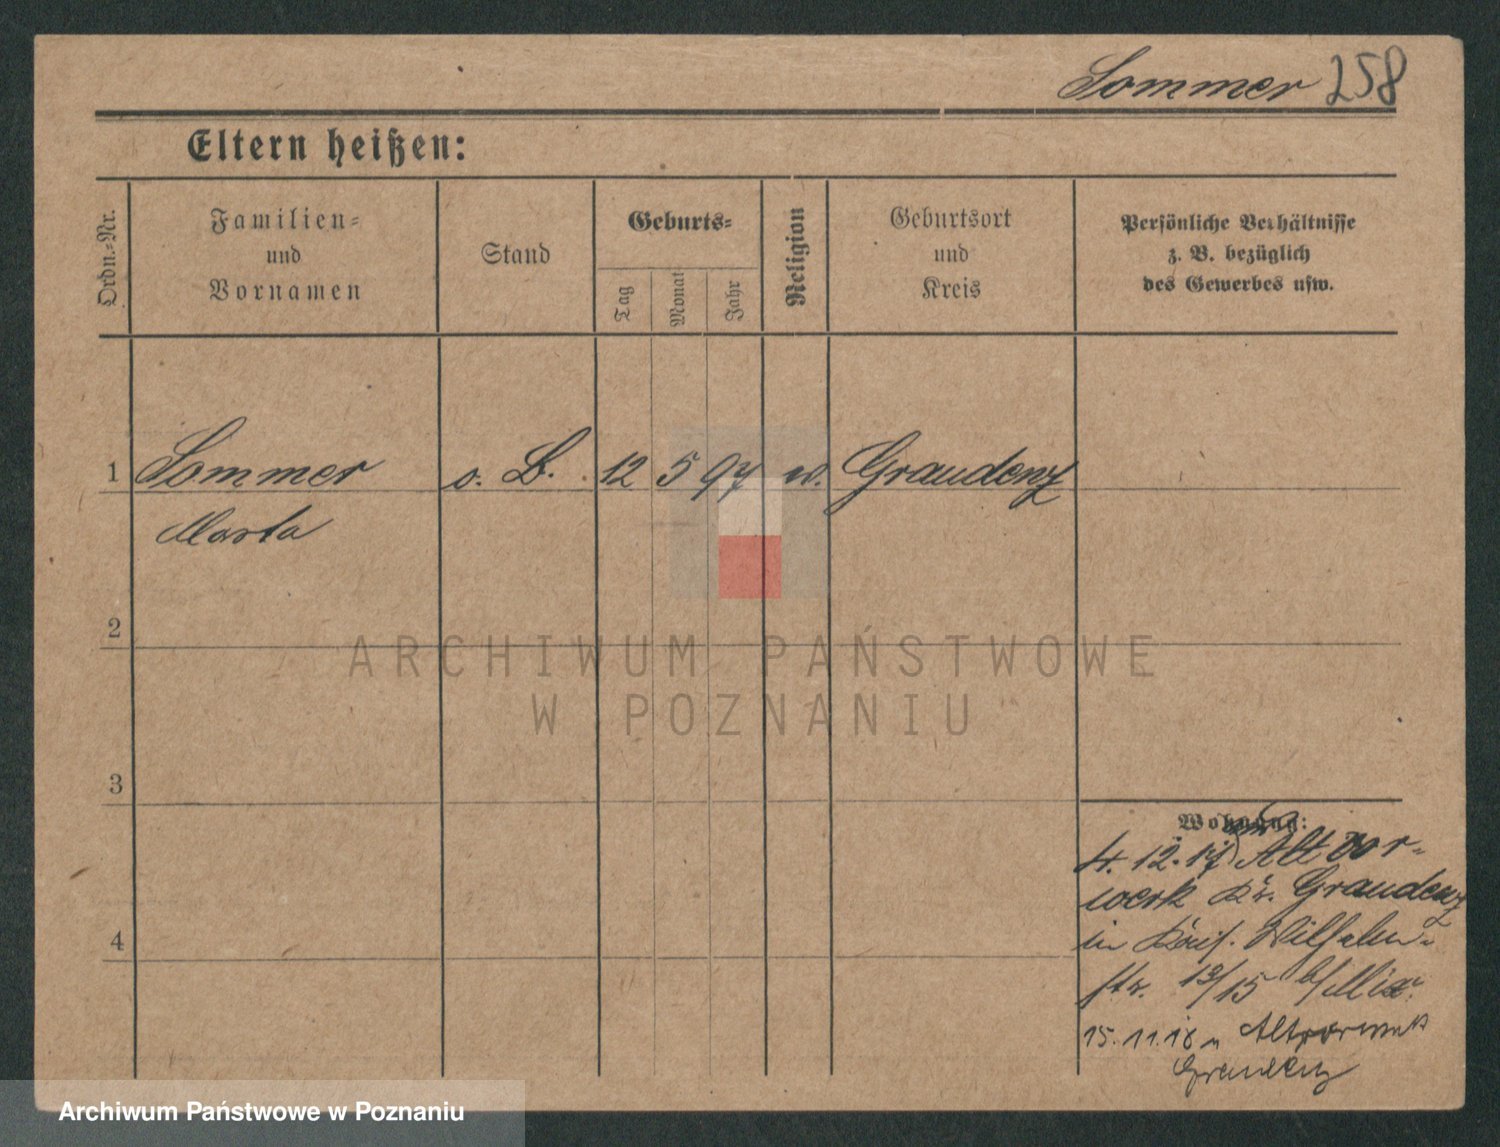 Sommer 258
Eltern heißen:
Ordn.-Nr.
Familien-
und
Vornamen
Stand
Geburts-
Tag
Monat
Jahr
Religion
Geburtsort
und
Kreis
Persönliche Verhältnisse
z. B. bezüglich
des Gewerbes usw.
1 Sommer o. B. 12 5 97 Graudenz
Marta
2
ARCHIWUM PAŃSTWOWE
W POZNANIU
3
Wohnung:
4. 12. 17 Alt Vor-
werk Kr. Graudenz
4
in Kais. Wilhelm-
str. 13/15 b/
15. 11. 18 n Altvorwerk
Graudenz
Archiwum Państwowe w Poznaniu